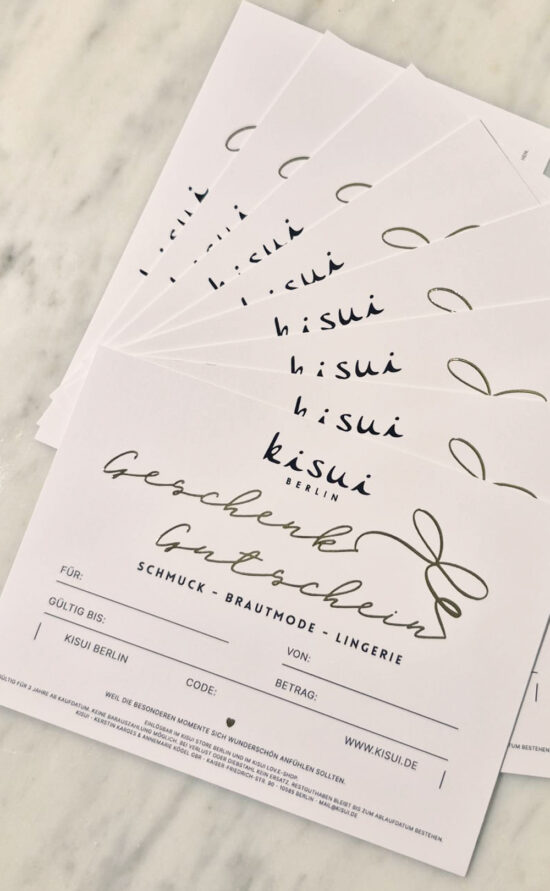 kisui
kisui
kisui
kisui
kisui
BERLIN
Geschenk
Gutschein
SCHMUCK - BRAUTMODE - LINGERIE
FÜR:
VON:
GÜLTIG BIS:
BETRAG:
KISUI BERLIN
CODE:
WWW.KISUI.DE
WEIL DIE BESONDEREN MOMENTE SICH WUNDERSCHÖN ANFÜHLEN SOLLTEN.
EINLÖSBAR IM KISUI STORE BERLIN UND IM KISUI LOVE-SHOP.
GÜLTIG FÜR 3 JAHRE AB KAUFDATUM. KEINE BARAUSZAHLUNG MÖGLICH. BEI VERLUST ODER DIEBSTAHL KEIN ERSATZ. RESTGUTHABEN BLEIBT BIS ZUM ABLAUFDATUM BESTEHEN.
KISUI · KERSTIN KARGES & ANNEMARIE KÖGEL GBR · KAISER-FRIEDRICH-STR. 90 · 10585 BERLIN · MAIL@KISUI.DE